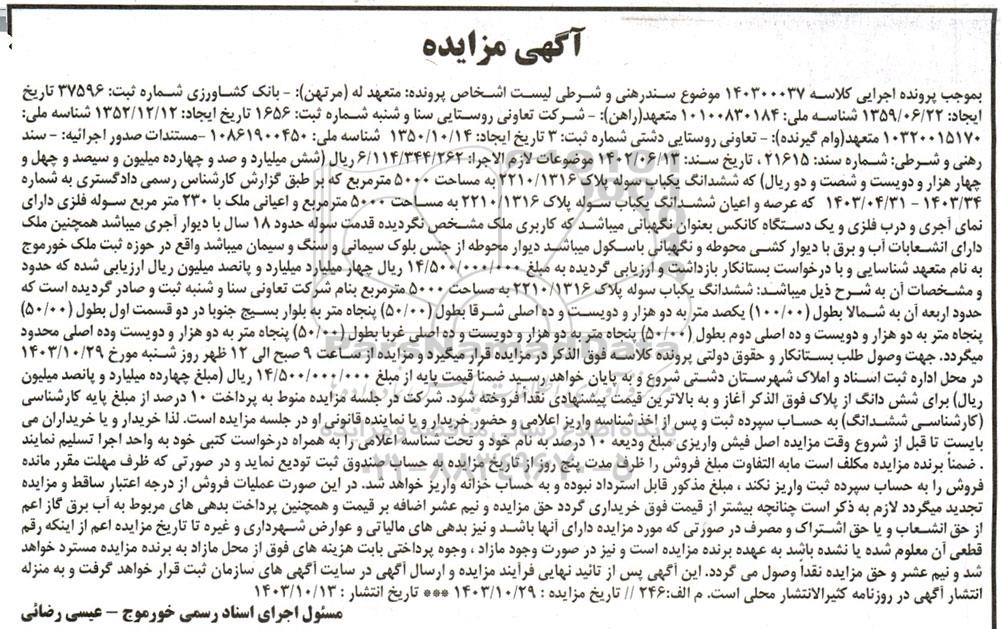 آگهی مزایده
بموجب پرونده اجرایی کلاسه ۱۴۰۳۰۰۰۳۷ موضوع سندرهنی و شرطی لیست اشخاص پرونده: متعهد له (مرتهن): - بانک کشاورزی شماره ثبت: ۳۷۵۹۶ تاریخ
ایجاد: ۱۳۵۹/۰۶/۲۲ شناسه ملی: ۱۰۱۰۰۸۳۰۱۸۴ متعهد(راهن): - شرکت تعاونی روستایی سنا و شنبه شماره ثبت: ۱۶۵۶ تاریخ ایجاد: ۱۳۵۲/۱۲/۱۲ شناسه ملی:
۱۰۳۲۰۰۱۵۱۷۰ متعهد(وام گیرنده): - تعاونی روستایی دشتی شماره ثبت: ۳ تاریخ ایجاد: ۱۳۵۰/۱۰/۱۴ شناسه ملی: ۱۰۸۶۱۹۰۰۴۵۰ -مستندات صدور اجرائیه: - سند
رهنی و شرطی: شماره سند: ۲۱۶۱۵ ، تاریخ سند: ۱۴۰۲/۰۶/۱۲ موضوعات لازم الاجرا: ۶/۱۱۴/۳۴۴/۲۶۲ ریال (شش میلیارد و صد و چهارده میلیون و سیصد و چهل و
چهار هزار و دویست و شصت و دو ریال) که ششدانگ یکباب سوله پلاک ۲۲۱۰/۱۳۱۶ به مساحت ۵۰۰۰ مترمربع که بر طبق گزارش کارشناس رسمی دادگستری به شماره
۱۴۰۳/۳۴ – ۱۴۰۳/۰۴/۳۱ که عرصه و اعیان ششدانگ یکباب سوله پلاک ۲۲۱۰/۱۳۱۶ به مساحت ۵۰۰۰ مترمربع و اعیانی ملک با ۲۳۰ متر مربع سوله فلزی دارای
نمای آجری و درب فلزی و یک دستگاه کانکس بعنوان نگهبانی میباشد که کاربری ملک مشخص نگردیده قدمت سوله حدود ۱۸ سال با دیوار آجری میباشد همچنین ملک
دارای انشعابات آب و برق با دیوار کشی محوطه و نگهبانی باسکول میباشد دیوار محوطه از جنس بلوک سیمانی و سنگ و سیمان میباشد واقع در حوزه ثبت ملک خورموج
به نام متعهد شناسایی و با درخواست بستانکار بازداشت و ارزیابی گردیده به مبلغ ۱۴/۵۰۰/۰۰۰/۰۰۰ ریال چهار میلیارد میلیارد و پانصد میلیون ریال ارزیابی شده که حدود
و مشخصات آن به شرح ذیل میباشد: ششدانگ یکباب سوله پلاک ۲۲۱۰/۱۳۱۶ به مساحت ۵۰۰۰ مترمربع بنام شرکت تعاونی سنا و شنبه ثبت و صادر گردیده است که
حدود اربعه آن به شمالا بطول (۱۰۰/۰۰) یکصد متر به دو هزار و دویست و ده اصلی شرقا بطول (۵۰/۰۰) پنجاه متر به بلوار بسیج جنوبا در دو قسمت اول بطول (۵۰/۰۰)
پنجاه متر به دو هزار و دویست و ده اصلی دوم بطول (۵۰/۰۰) پنجاه متر به دو هزار و دویست و ده اصلی غربا بطول (۵۰/۰۰) پنجاه متر به دو هزار و دویست وده اصلی محدود
میگردد. جهت وصول طلب بستانکار و حقوق دولتی پرونده کلاسه فوق الذکر در مزایده قرار میگیرد و مزایده از ساعت ۹ صبح الی ۱۲ ظهر روز شنبه مورخ ۱۴۰۳/۱۰/۲۹
در محل اداره ثبت اسناد و املاک شهرستان دشتی شروع و به پایان خواهد رسید ضمنا قیمت پایه از مبلغ ۱۴/۵۰۰/۰۰۰/۰۰۰ ریال (مبلغ چهارده میلیارد و پانصد میلیون
ریال) برای شش دانگ از پلاک فوق الذکر آغاز و به بالاترین قیمت پیشنهادی نقداً فروخته شود. شرکت در جلسه مزایده منوط به پرداخت ۱۰ درصد از مبلغ پایه کارشناسی
(کارشناسی ششدانگ) به حساب سپرده ثبت و پس از اخذ شناسه واریز اعلامی و حضور خریدار و یا نماینده قانونی او در جلسه مزایده است. لذا خریدار و یا خریداران می
بایست تا قبل از شروع وقت مزایده اصل فیش واریزی مبلغ ودیعه ۱۰ درصد به نام خود و تحت شناسه اعلامی را به همراه درخواست کتبی خود به واحد اجرا تسلیم نمایند
. ضمناً برنده مزایده مکلف است مابه التفاوت مبلغ فروش را ظرف مدت پنج روز از تاریخ مزایده به حساب صندوق ثبت تودیع نماید و در صورتی که ظرف مهلت مقرر مانده
فروش را به حساب سپرده ثبت واریز نکند ، مبلغ مذکور قابل استرداد نبوده و به حساب خزانه واریز خواهد شد. در این صورت عملیات فروش از درجه اعتبار ساقط و مزایده
تجدید میگردد لازم به ذکر است چنانچه بیشتر از قیمت فوق خریداری گردد حق مزایده و نیم عشر اضافه بر قیمت و همچنین پرداخت بدهی های مربوط به آب برق گاز اعم
از حق انشعاب و یا حق اشتراک و مصرف در صورتی که مورد مزایده دارای آنها باشد و نیز بدهی های مالیاتی و عوارض شهرداری و غیره تا تاریخ مزایده اعم از اینکه رقم
قطعی آن معلوم شده یا نشده باشد به عهده برنده مزایده است و نیز در صورت وجود مازاد ، وجوه پرداختی بابت هزینه های فوق از محل مازاد به برنده مزایده مسترد خواهد
شد و نیم عشر و حق مزایده نقداً وصول می گردد. این آگهی پس از تائید نهایی فرآیند مزایده و ارسال آگهی در سایت آگهی های سازمان ثبت قرار خواهد گرفت و به منزله
انتشار آگهی در روزنامه کثیرالانتشار محلی است. م الف:۲۴۶ // تاریخ مزایده : ۱۴۰۳/۱۰/۲۹ *** تاریخ انتشار : ۱۴۰۳/۱۰/۱۳
مسئول اجرای اسناد رسمی خورموج – عیسی رضائی
ParsNamadData
۰۲۱-۸۸۳۴۹۶۷۰-۵